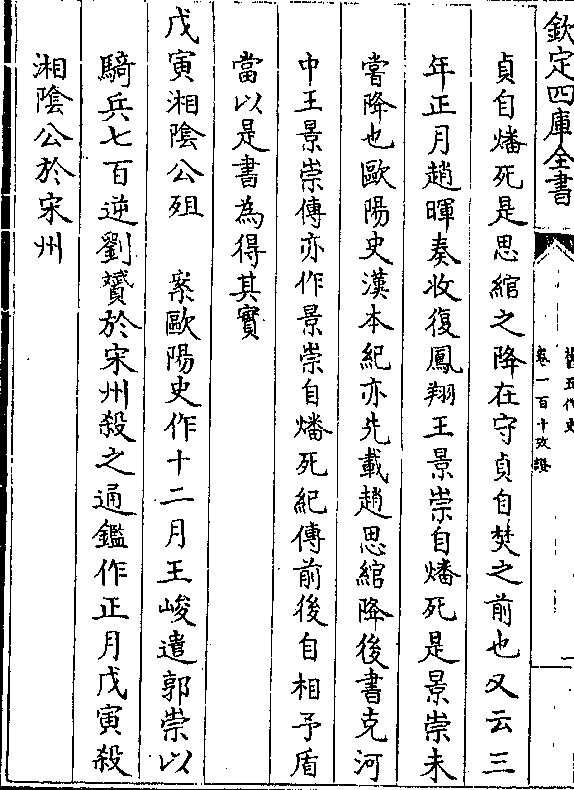 欽定四庫全書
舊五代史
卷一百十攷證
貞自燔死是思綰之降在守貞自焚之前也又云三
年正月趙暉奏收復鳳翔王景崇自燔死是景崇未
嘗降也歐陽史漢本紀亦先載趙思綰降後書克河
中王景崇傳亦作景崇自燔死紀傳前後自相矛盾
當以是書為得其實
戊寅湘陰公殂　案歐陽史作十二月王峻遣郭崇以
騎兵七百逆劉贇於宋州殺之通鑑作正月戊寅殺
湘陰公於宋州